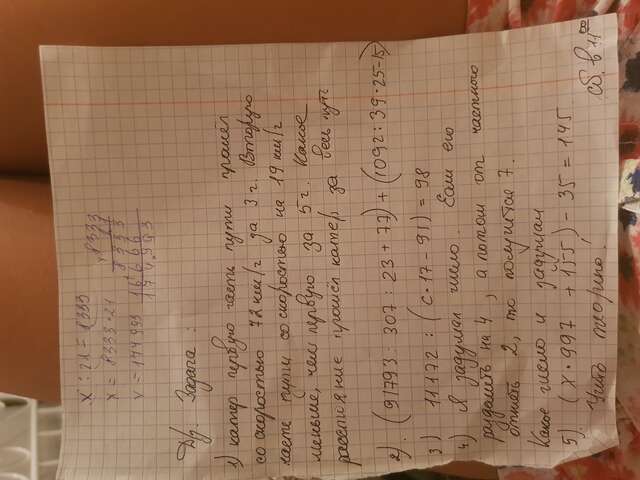 x : 21 = 8333
x = 8333 · 21
x = 174 993
x 8333
21
8333
16666
174993
Д/з. Задача :
1) катер первую часть пути прошёл
со скоростью 72 км/г за 3 г. Вторую
часть пути со скоростью на 19 км/г
меньше, чем первую за 5 г. Какое
расстояние прошёл катер за весь путь
2). (91793 : 307 : 23 + 77) + (1092 : 39 · 25 - 15)
3) 11172 : (с · 17 - 91) = 98
4) Я задумал число. Если его
разделить на 4, а потом от частного
отнять 2, то получится 7.
Какое число я задумал
5). (x · 997 + 155) - 35 = 145
Учить теорию.
сб. в 11 00